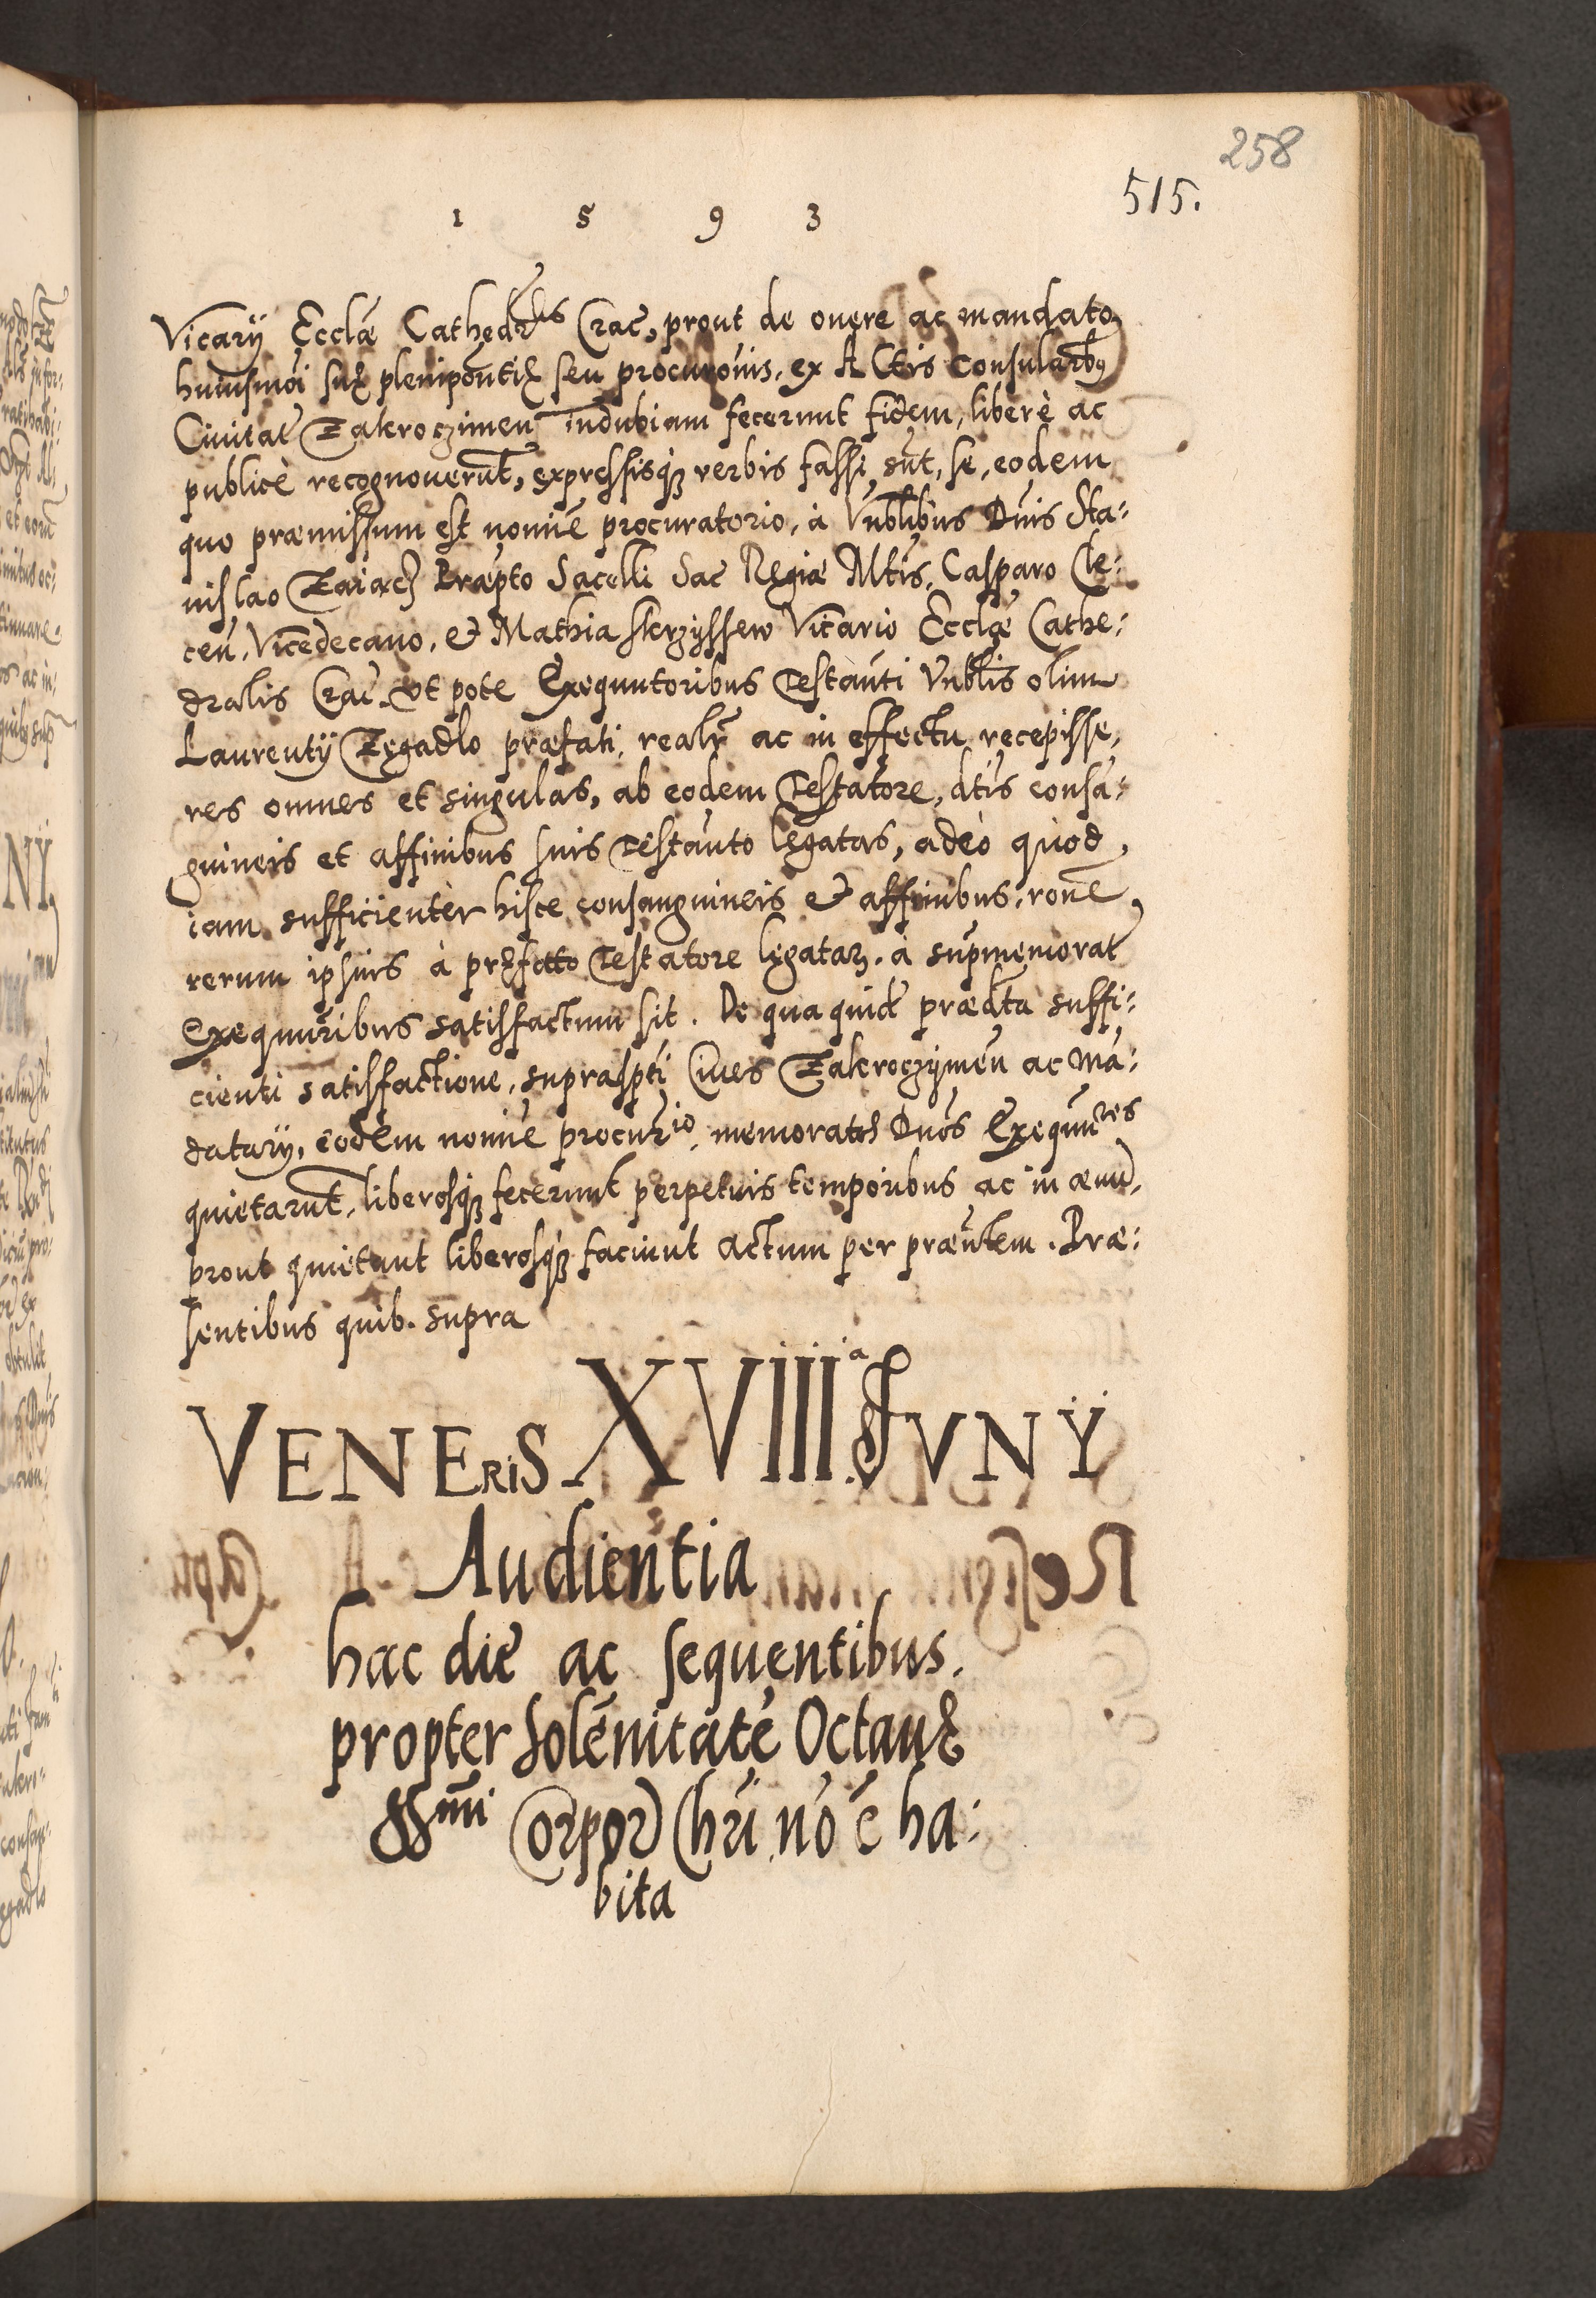 258
515.
1 5 9 3
Vicarÿ Ecclæ Cathedrlis Crac̄, prout de onere ac mandato
huiusmōi suę plenipōntię seu procurōnis, ex Actis Consularibq
Ciuitat̄ Zakroczimeñ indubiam fecerunt fidem, liberè ac
publicè recognouerūt, expressisq3 verbis fassi sūt, se, eodem
quo præmissum est nomīe procuratorio, à Vnblibus Dn̄is Sta:
nislao Zaiącz Præpto Sacelli Sac̄ Regiæ Mtis, Casparo Cle:
ceñ, Vicedecano, et Mathia Skrzyssew Vicario Ecclæ Cathe:
dralis Crac̄ vt pote Exequutoribus Testāti Vnblis olim
Laurentÿ Zegadlo præfati, realr̄ ac in effectu recepisse,
res omnes et singulas, ab eodem Testatore, dtis consā:
guineis et affinibus suis Testāto legatas, adeò quòd,
iam sufficienter hisce consanguineis et affinibus, rōne,
rerum ipsius à pręfato Testatore legatarz, à supmemorat̄
Exequutribus satisfactum sit. De qua quid̄ prædta suffi:
cienti satisfactione, suprasp̄ti Ciues Zakroczymeñ ac mā:
datarÿ, eodem nomīe procurio, memoratos Dnōs Exequutres
quietarūt, liberosq3 fecerunt perpetuis temporibus ac in æuū,
prout quietant liberosq3 faciunt actum per præntem. Præ:
sentibus quib. supra
VENERiS XVIIIIa JVNŸ
Audientia
hac die ac sequentibus.
propter Solēnitatē Octauę
SSmi Corpor Chri nō ē ha:
bita